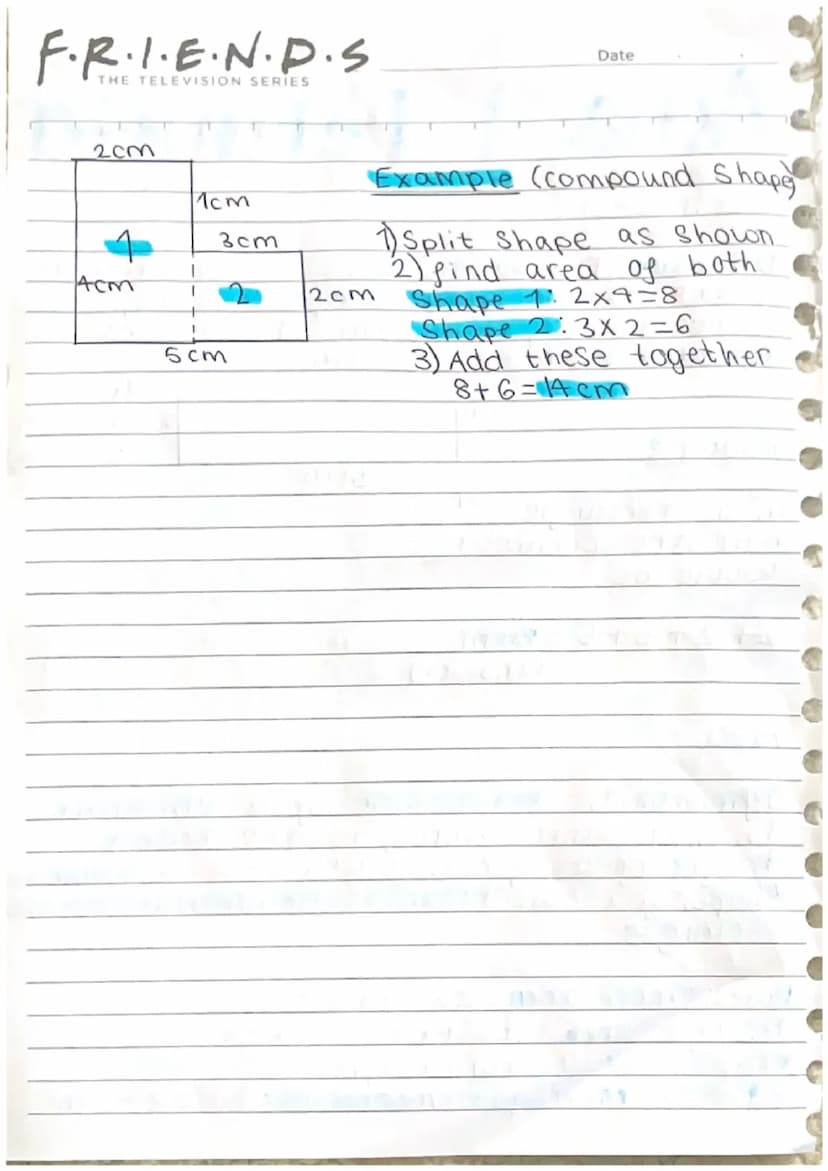 F.R.I.E.N.D.S
THE TELEVISION SERIES
Date
2cm
1cm
3cm
1
4cm
2
2cm
5cm
Example (compound Shape)
1) Split Shape as Shown
2) find area of both
Shape 1: 2x4=8
Shape 2: 3x2=6
3) Add these together
8+6=14cm